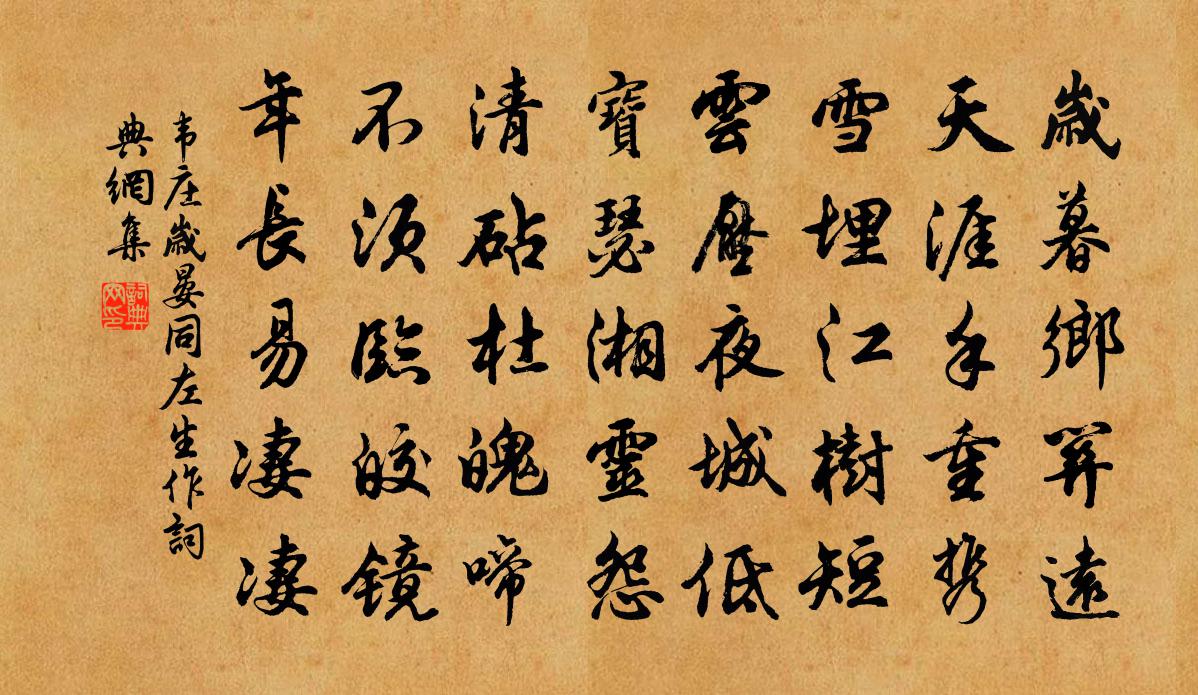 歲暮鄉關遠
天涯手重携
雪埋江樹短
雲壓夜城低
寶瑟湘靈怨
清砧杜魄啼
不須臨皎鏡
年長易凄凄
韦庄歲晏同左生作詞
典網集
詞典網印